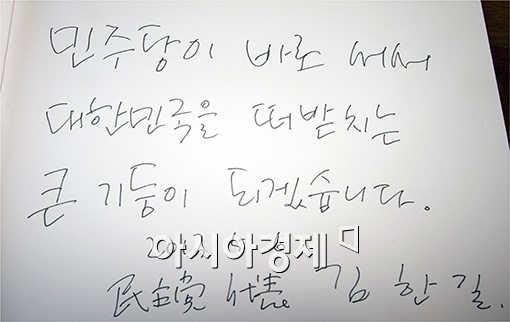 민주당이 바로 서서
대한민국을 떠받치는
큰 기둥이 되겠습니다.
아시아경제
民主党 代表 김한길.